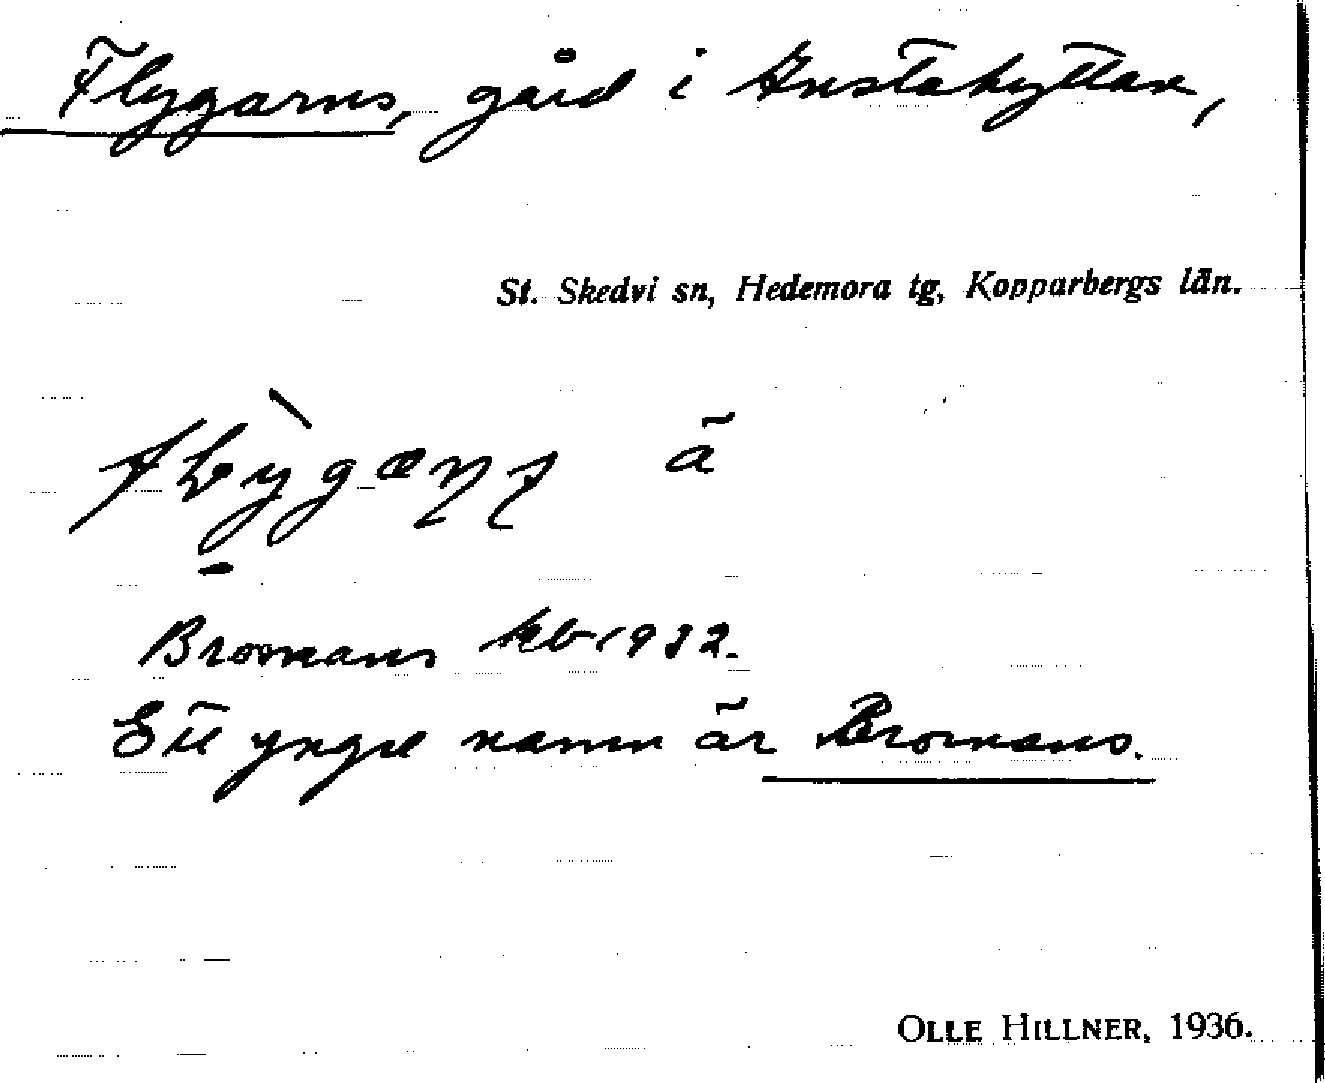 Flygarns, gård i Gustahyttan,
St. Skedvi sn, Hedemora tg, Kopparbergs län.
ã
Bromans kb 1932.
Ett yngre namn är Bromans.
OLLE HILLNER, 1936.